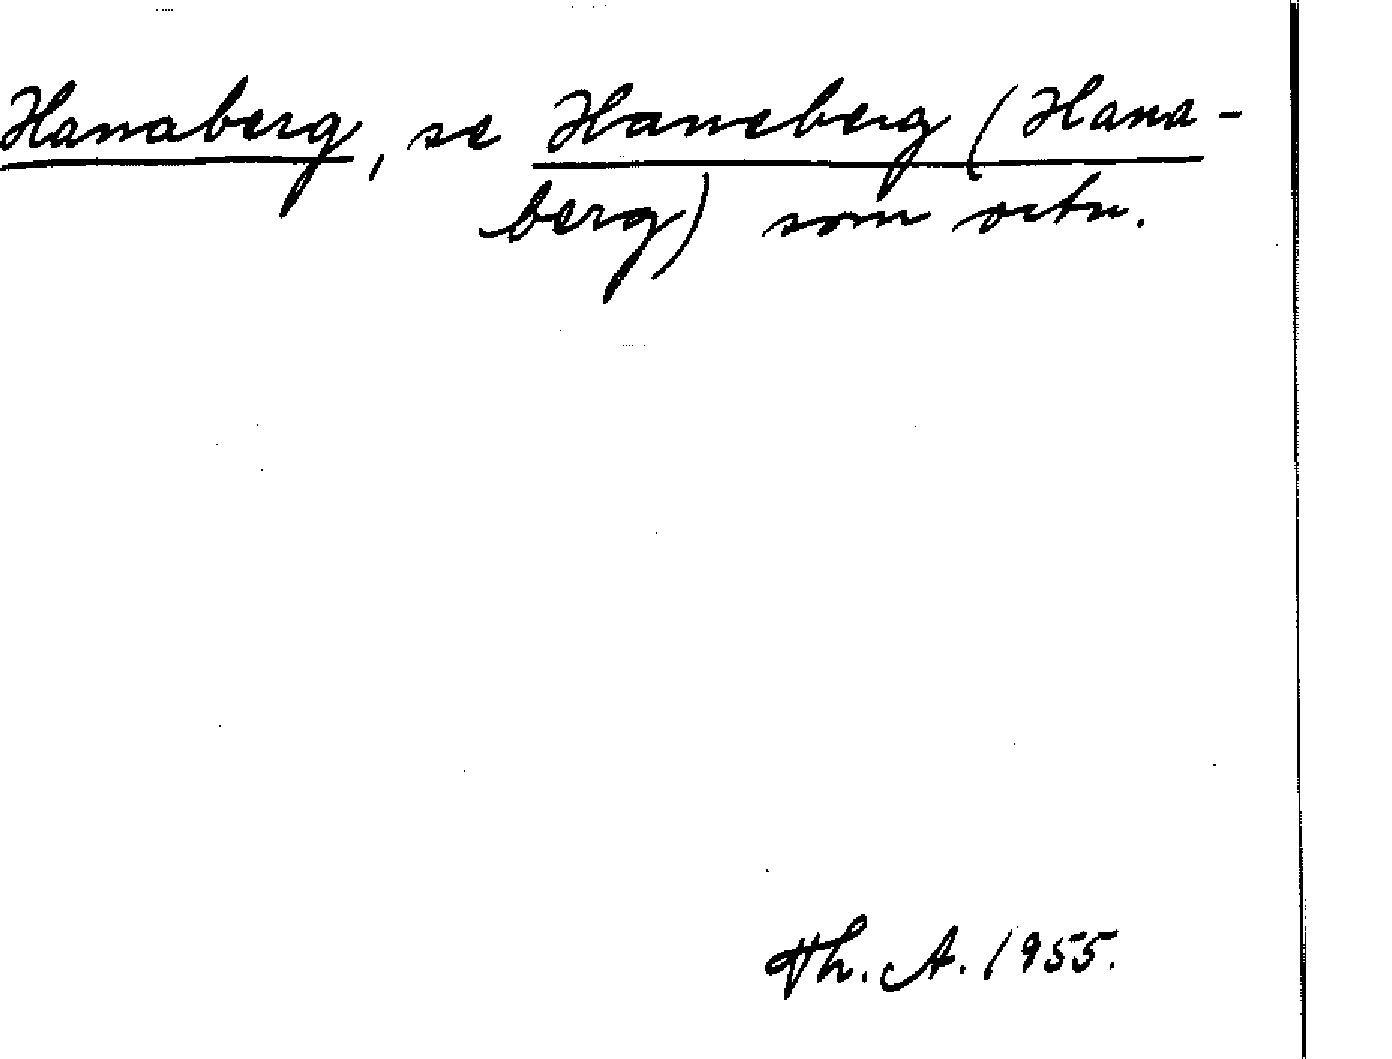 Hanaberg, se Haneberg (Hana-
berg) som ortn.
Th. A. 1955.